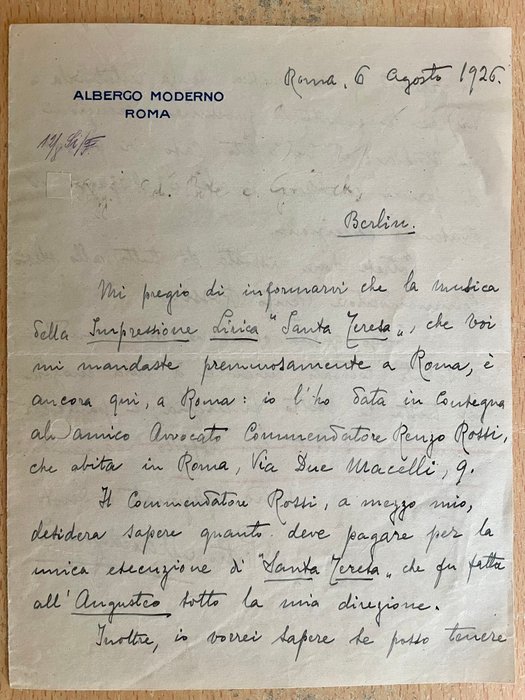 Roma, 6 Agosto 1926.
ALBERGO MODERNO
ROMA
Berlin.
Mi pregio di informarvi che la musica
della Impressione Lirica "Santa Teresa„, che voi
mi mandaste premurosamente a Roma, è
ancora quì, a Roma: io l'ho data in consegna
all'amico Avvocato Commendatore Renzo Rossi,
che abita in Roma, Via Due Macelli, 9.
Il Commendatore Rossi, a mezzo mio,
desidera sapere quanto deve pagare per la
unica esecuzione di "Santa Teresa„ che fu fatta
all'Augusteo sotto la mia direzione.
Inoltre, io vorrei sapere se posso tenere